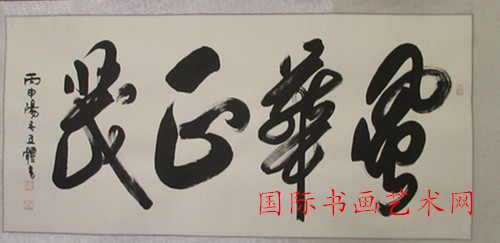 風華正茂
丙申陽春
国际书画艺术网